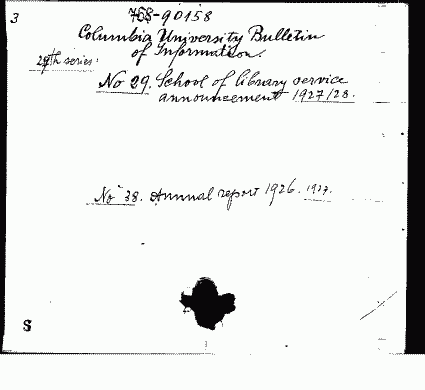 3
768-90158
Columbia University Bulletin
of Information.
27th series:
No 29. School of library service
announcement 1927/28.
No 38. Annual report 1926. 1927.
S